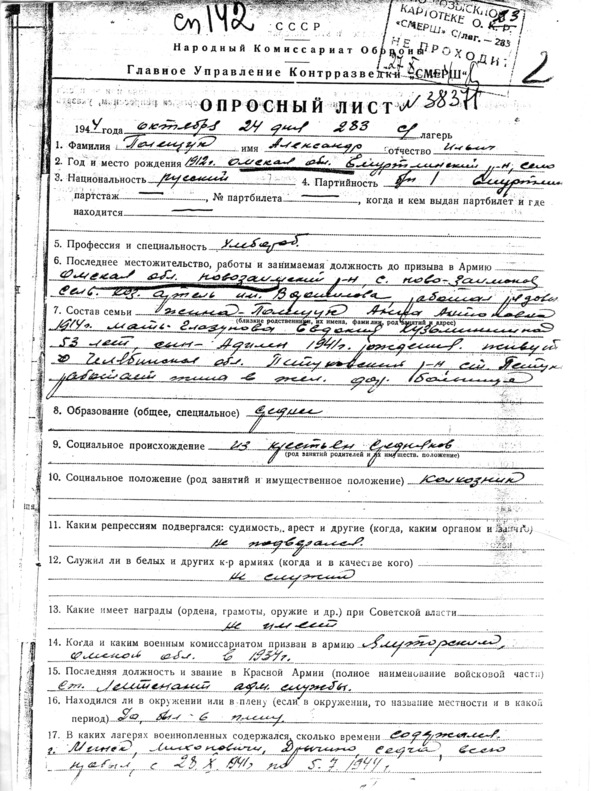 сп 142
СССР
КАРТОТЕКЕ О. К. Р.
«СМЕРШ» С/лаг. — 283
НЕ ПРОХОДИ
Народный Комиссариат Обороны
Главное Управление Контрразведки „СМЕРШ"
2
ОПРОСНЫЙ ЛИСТ № 38371
1944 года октября 24 дня 283 с/лагерь
1. Фамилия Полещук имя Александр отчество Ильич
2. Год и место рождения 1912г. Омская обл. р-н, село
3. Национальность русский 4. Партийность
партстаж , № партбилета , когда и кем выдан партбилет и где
находится
5. Профессия и специальность Хлебороб.
6. Последнее местожительство, работы и занимаемая должность до призыва в Армию
Омская обл. р-н с. Ново-
артель им. работал рядовы
7. Состав семьи жена - Полещук Анна Антоновна
(близкие родственники, их имена, фамилии, род занятий и адрес)
1914г. мать - Глазунова Евдокия
53 лет сын - 1941г. рождения. живут
в Челябинской обл. р-н, ст.
работает жена в жел. дор. больнице
8. Образование (общее, специальное) среднее
9. Социальное происхождение из крестьян середняков
(род занятий родителей и их имуществ. положение)
10. Социальное положение (род занятий и имущественное положение) Колхозник
11. Каким репрессиям подвергался: судимость, арест и другие (когда, каким органом и за что)
не подвергался.
12. Служил ли в белых и других к-р армиях (когда и в качестве кого)
не служил
13. Какие имеет награды (ордена, грамоты, оружие и др.) при Советской власти
не имеет
14. Когда и каким военным комиссариатом призван в армию Ялуторским,
Омской обл. в 1934г.
15. Последняя должность и звание в Красной Армии (полное наименование войсковой части)
ст. Лейтенант адм. службы.
16. Находился ли в окружении или в плену (если в окружении, то название местности и в какой
период) Да, был в плену.
17. В каких лагерях военнопленных содержался, сколько времени содержался.
г. Минск, седча, всего
с 28.X.1941г по 5.7.1944г.